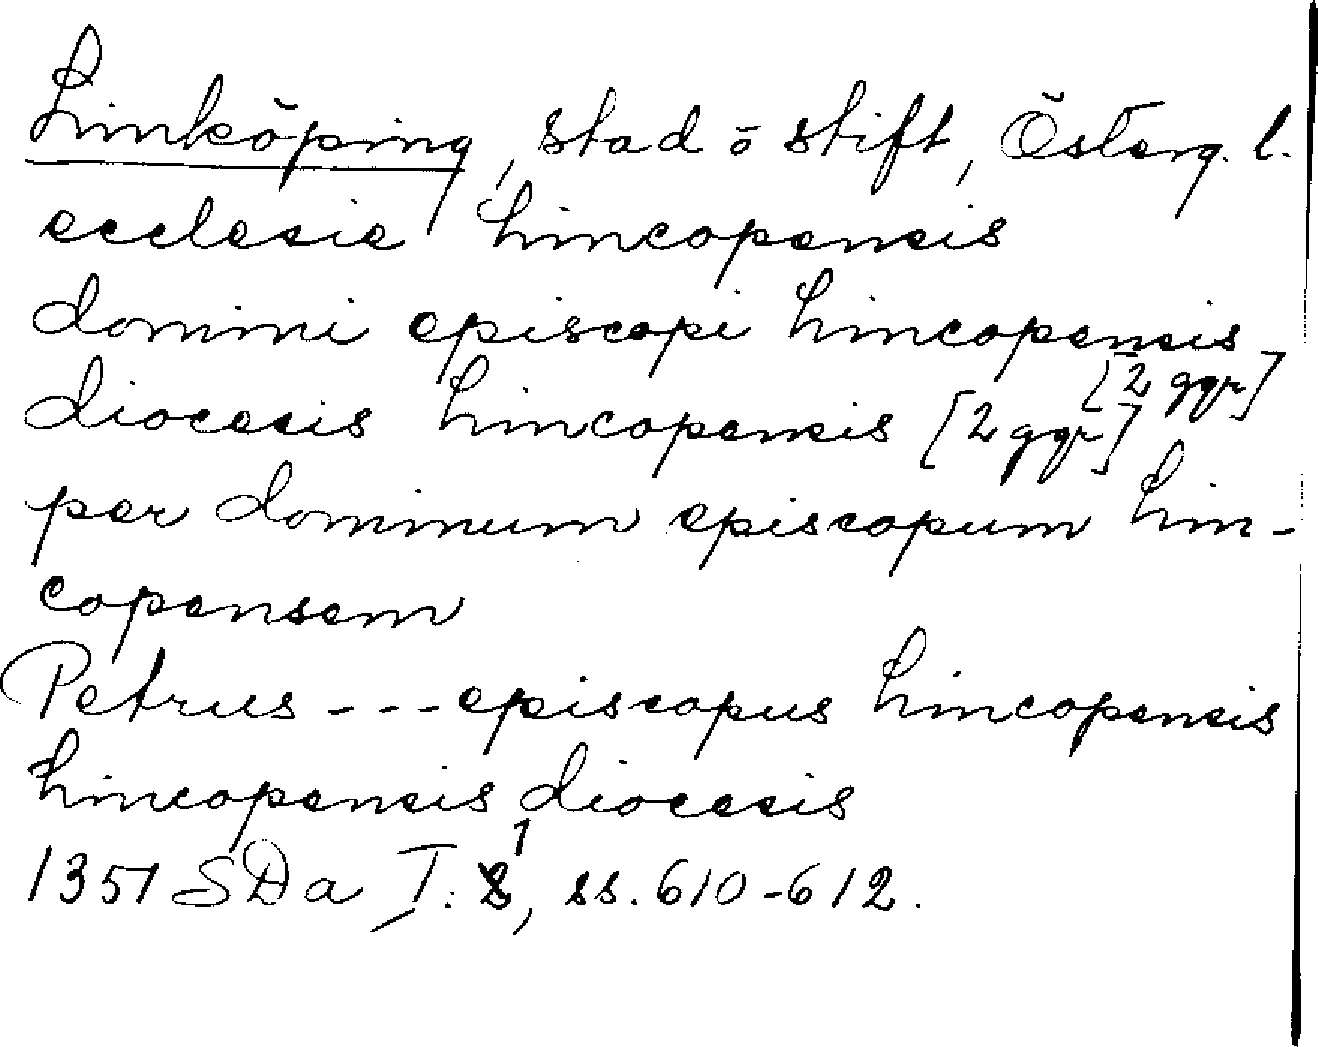 Linköping, stad ō stift, Österg. l.
ecclesie lincopensis
domini episcopi lincopensis
[2 ggr]
diocesis lincopensis [2 ggr]
per dominum episcopum lin-
copensem
Petrus --- episcopus lincopensis
lincopensis diocesis
1351 SDa I: 1, ss. 610-612.